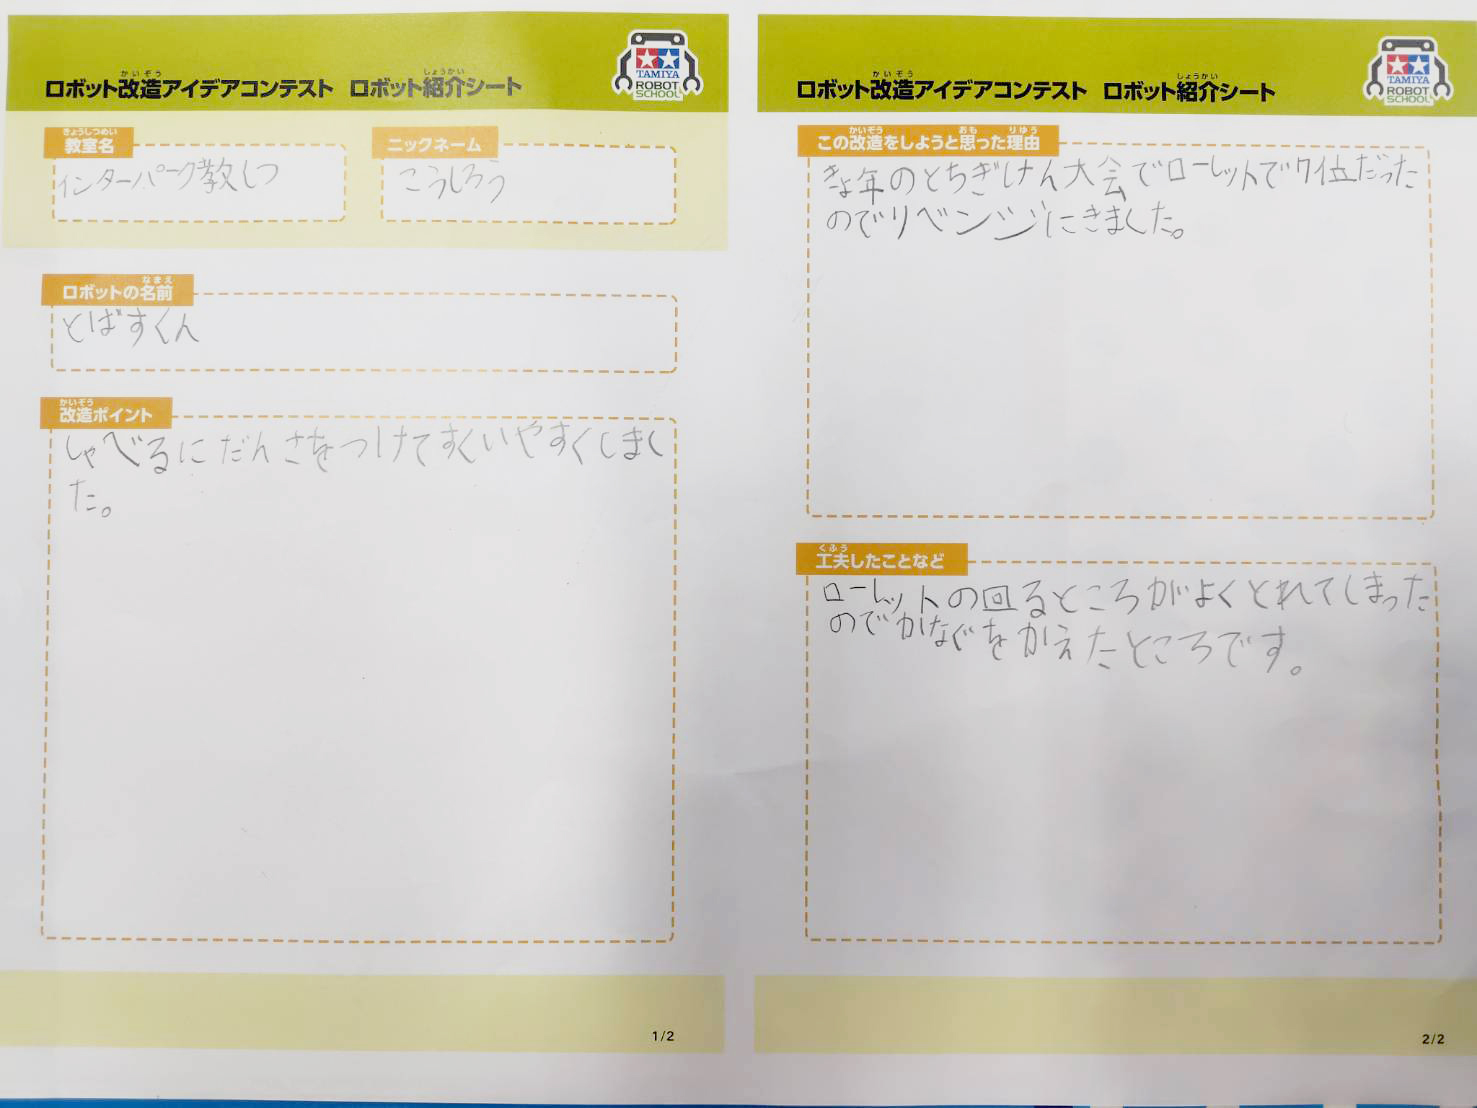 ロボット改造アイデアコンテスト ロボット紹介シート
かいぞう
しょうかい
TAMIYA
ROBOT
SCHOOL
きょうしつめい
教室名
インターパーク教しつ
ニックネーム
こうしろう
なまえ
ロボットの名前
とばすくん
かいぞう
改造ポイント
しゃべるにだんさをつけてすくいやすくしまし
た。
1/2
かいぞう
しょうかい
ロボット改造アイデアコンテスト ロボット紹介シート
TAMIYA
ROBOT
SCHOOL
かいぞう おも りゆう
この改造をしようと思った理由
きょ年のとちぎけん大会でローレットで7位だった
のでリベンジにきました。
くふう
工夫したことなど
ローレットの回るところがよくとれてしまった
のでかなぐをかえたところです。
2/2